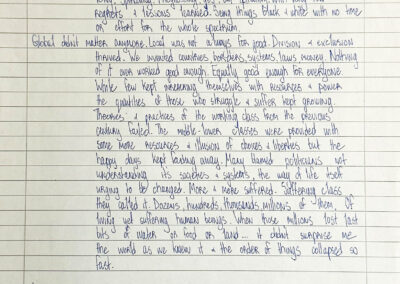 regrets & lessons learned. Seeing things black & white with no time
or effort for the whole spectrum.
Global didnt matter anymore. Local was not always for good. Division & exclusion
thrived. We invented countries borders, systems, laws money. Nothing
of it ever worked good enough. Equally good enough for everyone.
While few kept themselves with resources & power
the quantities of those who struggle & suffer kept growing.
Theories & practices of the working class from the previous
century failed. The middle-lower classes were provided with
some more resources & illusion of choices & liberties but the
happy days kept fading away. Many blamed politicians not
understanding its societies & systems, the way of life itself
urging to be changed. More & more suffered. Suffering class
they called it. Dozens, hundreds, thousands, millions of them. Of
living yet suffering human beings. When those millions lost last
bits of water or food or land... it didnt surprise me
the world as we know it & the order of things collapsed so
fast.